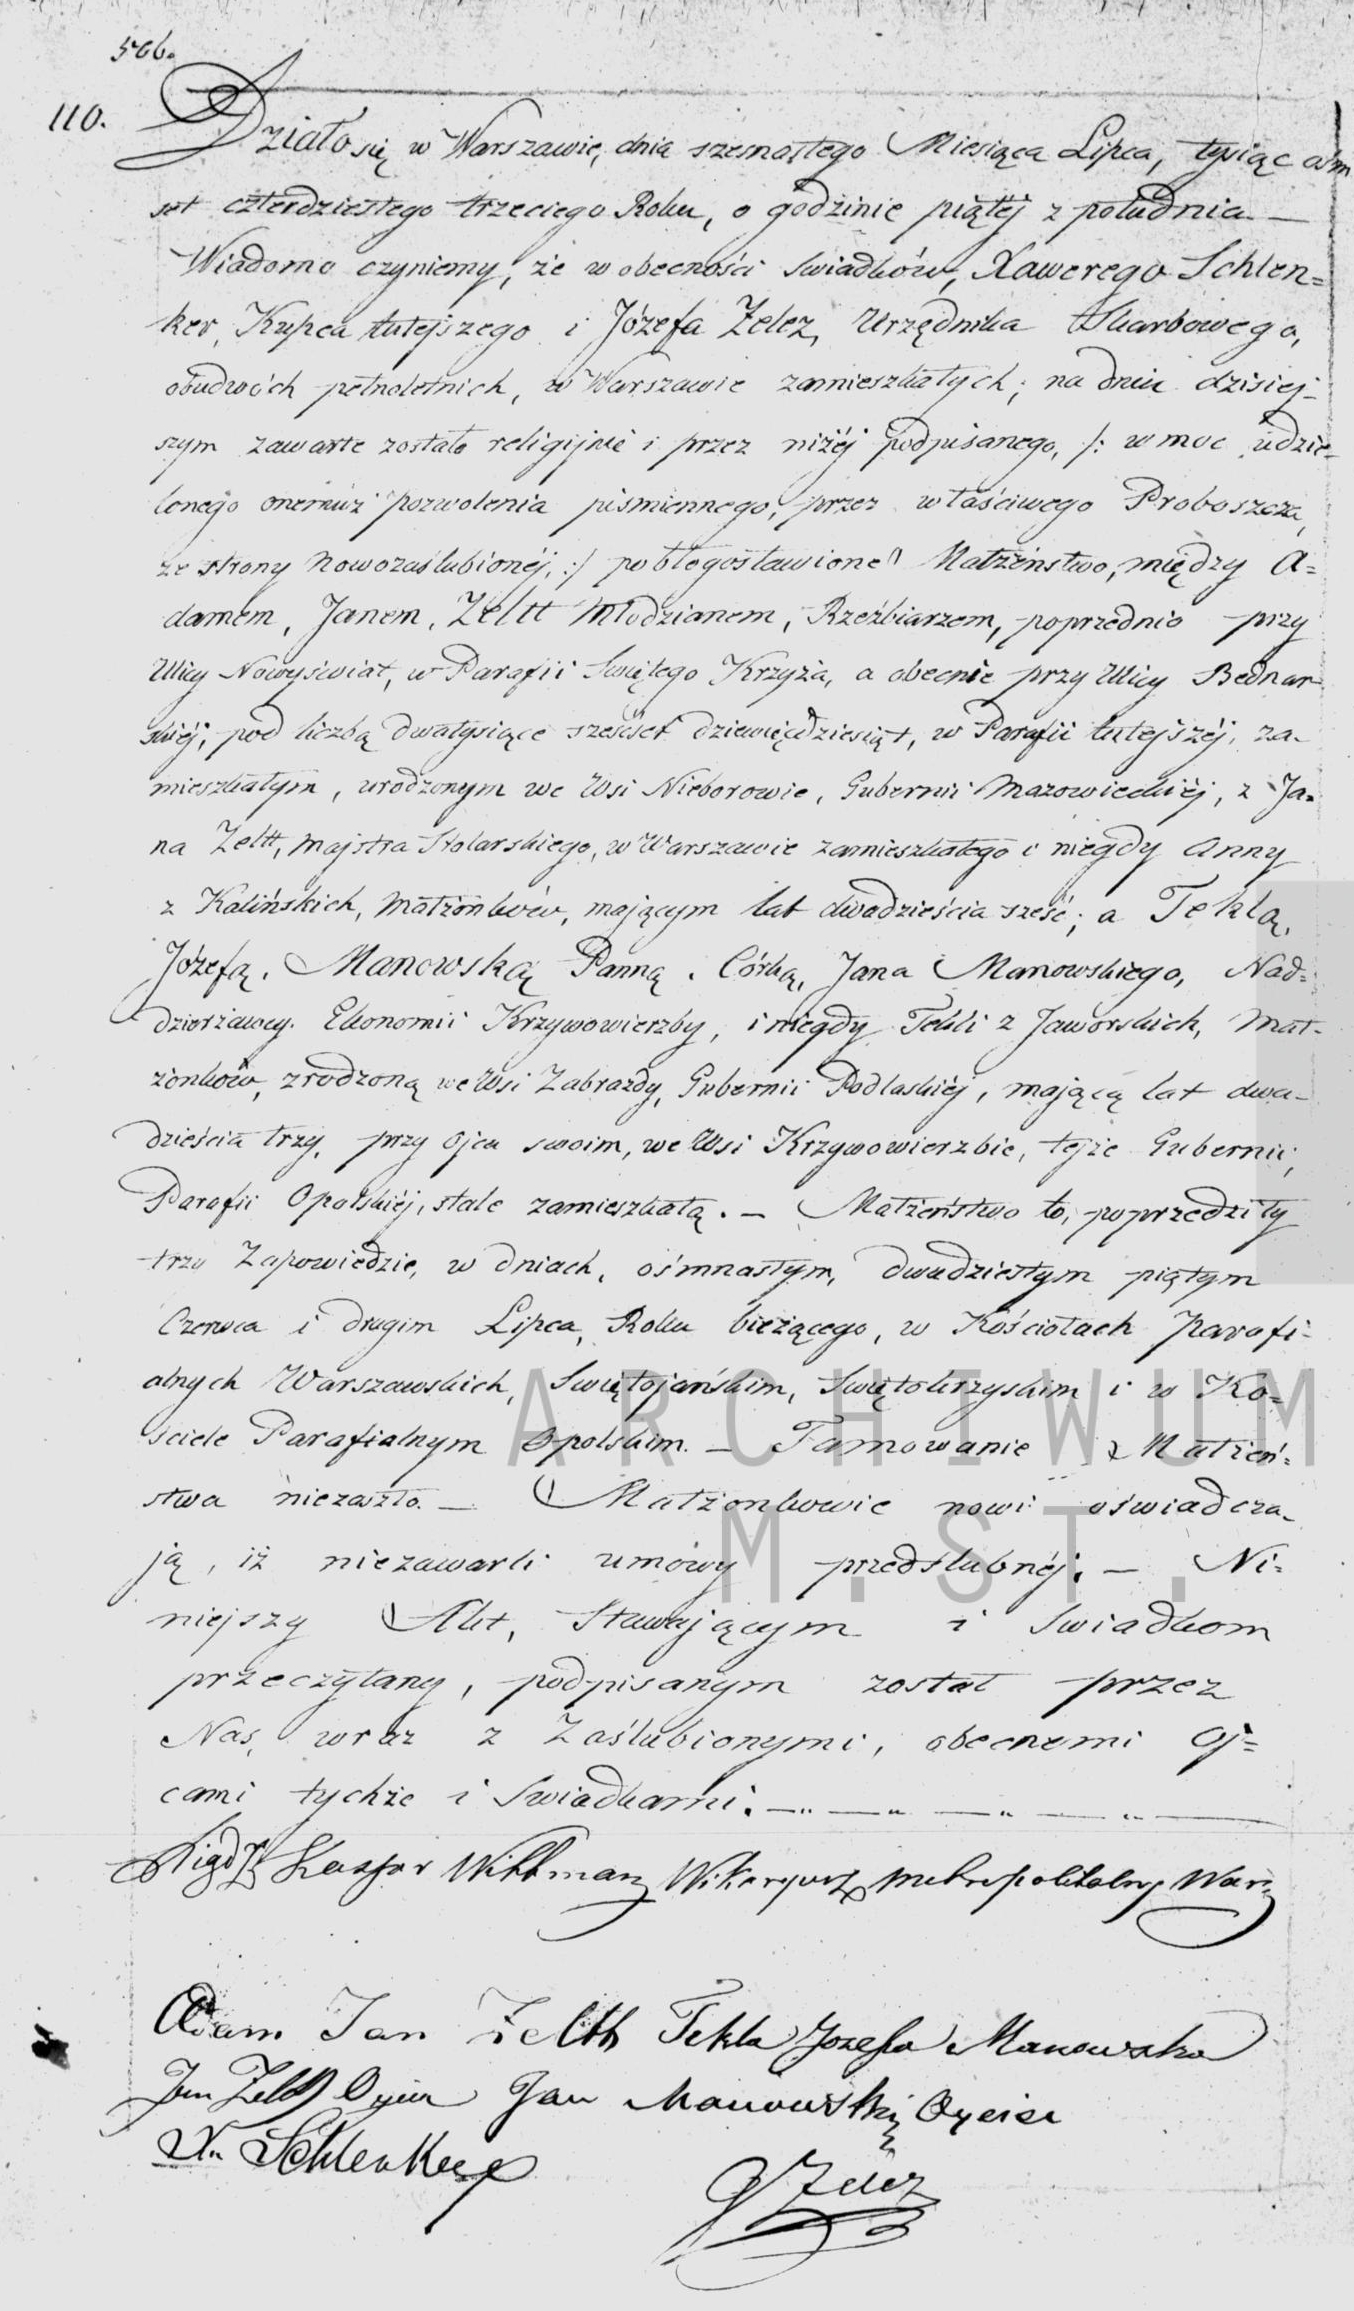 506.
110.
Działo się w Warszawie, dnia szesnastego Miesiąca Lipca, tysiąc ośm
set czterdziestego trzeciego Roku, o godzinie piątej z południa —
Wiadomo czyniemy, że w obecności Swiadków, Xawerego Schlen=
ker, Kupca tutejszego i Józefa Zelez, Urzędnika Skarbowego,
obudwóch pełnoletnich, w Warszawie zamieszkałych; na dniu dzisiej-
szym zawarte zostało religijnie i przez niżéj podpisanego, /: w moc udzie-
lonego onemuż pozwolenia piśmiennego, przez właściwego Proboszcza,
ze strony Nowozaślubionéj, :/ pobłogosławione Małżeństwo, między A=
damem, Janem, Zeltt Młodzianem, Rzeźbiarzem, poprzednio przy
Ulicy Nowyświat, w Parafii Swiętego Krzyża, a obecnie przy Ulicy Bednar-
skiéj, pod liczbą dwatysiące sześćset dziewięćdziesiąt, w Parafii tutejszéj, za-
mieszkałym, urodzonym we Wsi Nieborowie, Gubernii Mazowieckiéj, z Ja=
na Zeltt, Majstra Stolarskiego, w Warszawie zamieszkałego i niegdy Anny
z Kalińskich, Małżonków, mającym lat dwadzieścia sześć; a Teklą,
Józefą, Manowską Panną, Córką, Jana Manowskiego, Nad=
dzierżawcy Ekonomii Krzywowierzby, i niegdy Tekli z Jaworskich, Mał-
żonków, zrodzoną we Wsi Zabrazdy, Gubernii Podlaskiéj, mającą lat dwa-
dzieścia trzy, przy Ojcu swoim, we Wsi Krzywowierzbie, tejże Gubernii,
Parafii Opolskiéj, stale zamieszkałą. — Małżeństwo to, poprzedziły
trzy Zapowiedzie, w dniach, ośmnastym, dwudziestym piątym
Czerwca i drugim Lipca, Roku bieżącego, w Kościołach Parafi-
alnych Warszawskich, Swiętojańskim, Swiętokrzyskim i w Ko=
ściele Parafialnym Opolskim. — Tamowanie Małżeń=
stwa niezaszło. — Małżonkowie nowi oświadcza-
ją, iż niezawarli umówy przedślubnéj. — Ni=
niejszy Akt, Stawającym i Swiadkom
przeczytany, podpisanym został przez
Nas, wraz z Zaślubionymi, obecnemi Oj=
cami tychże i Swiadkami. —
Xiądz Kasper Wittman Wikaryusz Metropolitalny Warsz
Adam Jan Zeltt Tekla Jozefa Manowska
Jan Zeltt Oyciec Jan Manowski Oyciec
X. Schlenker
J Zelez
ARCHIWUM
M. ST.